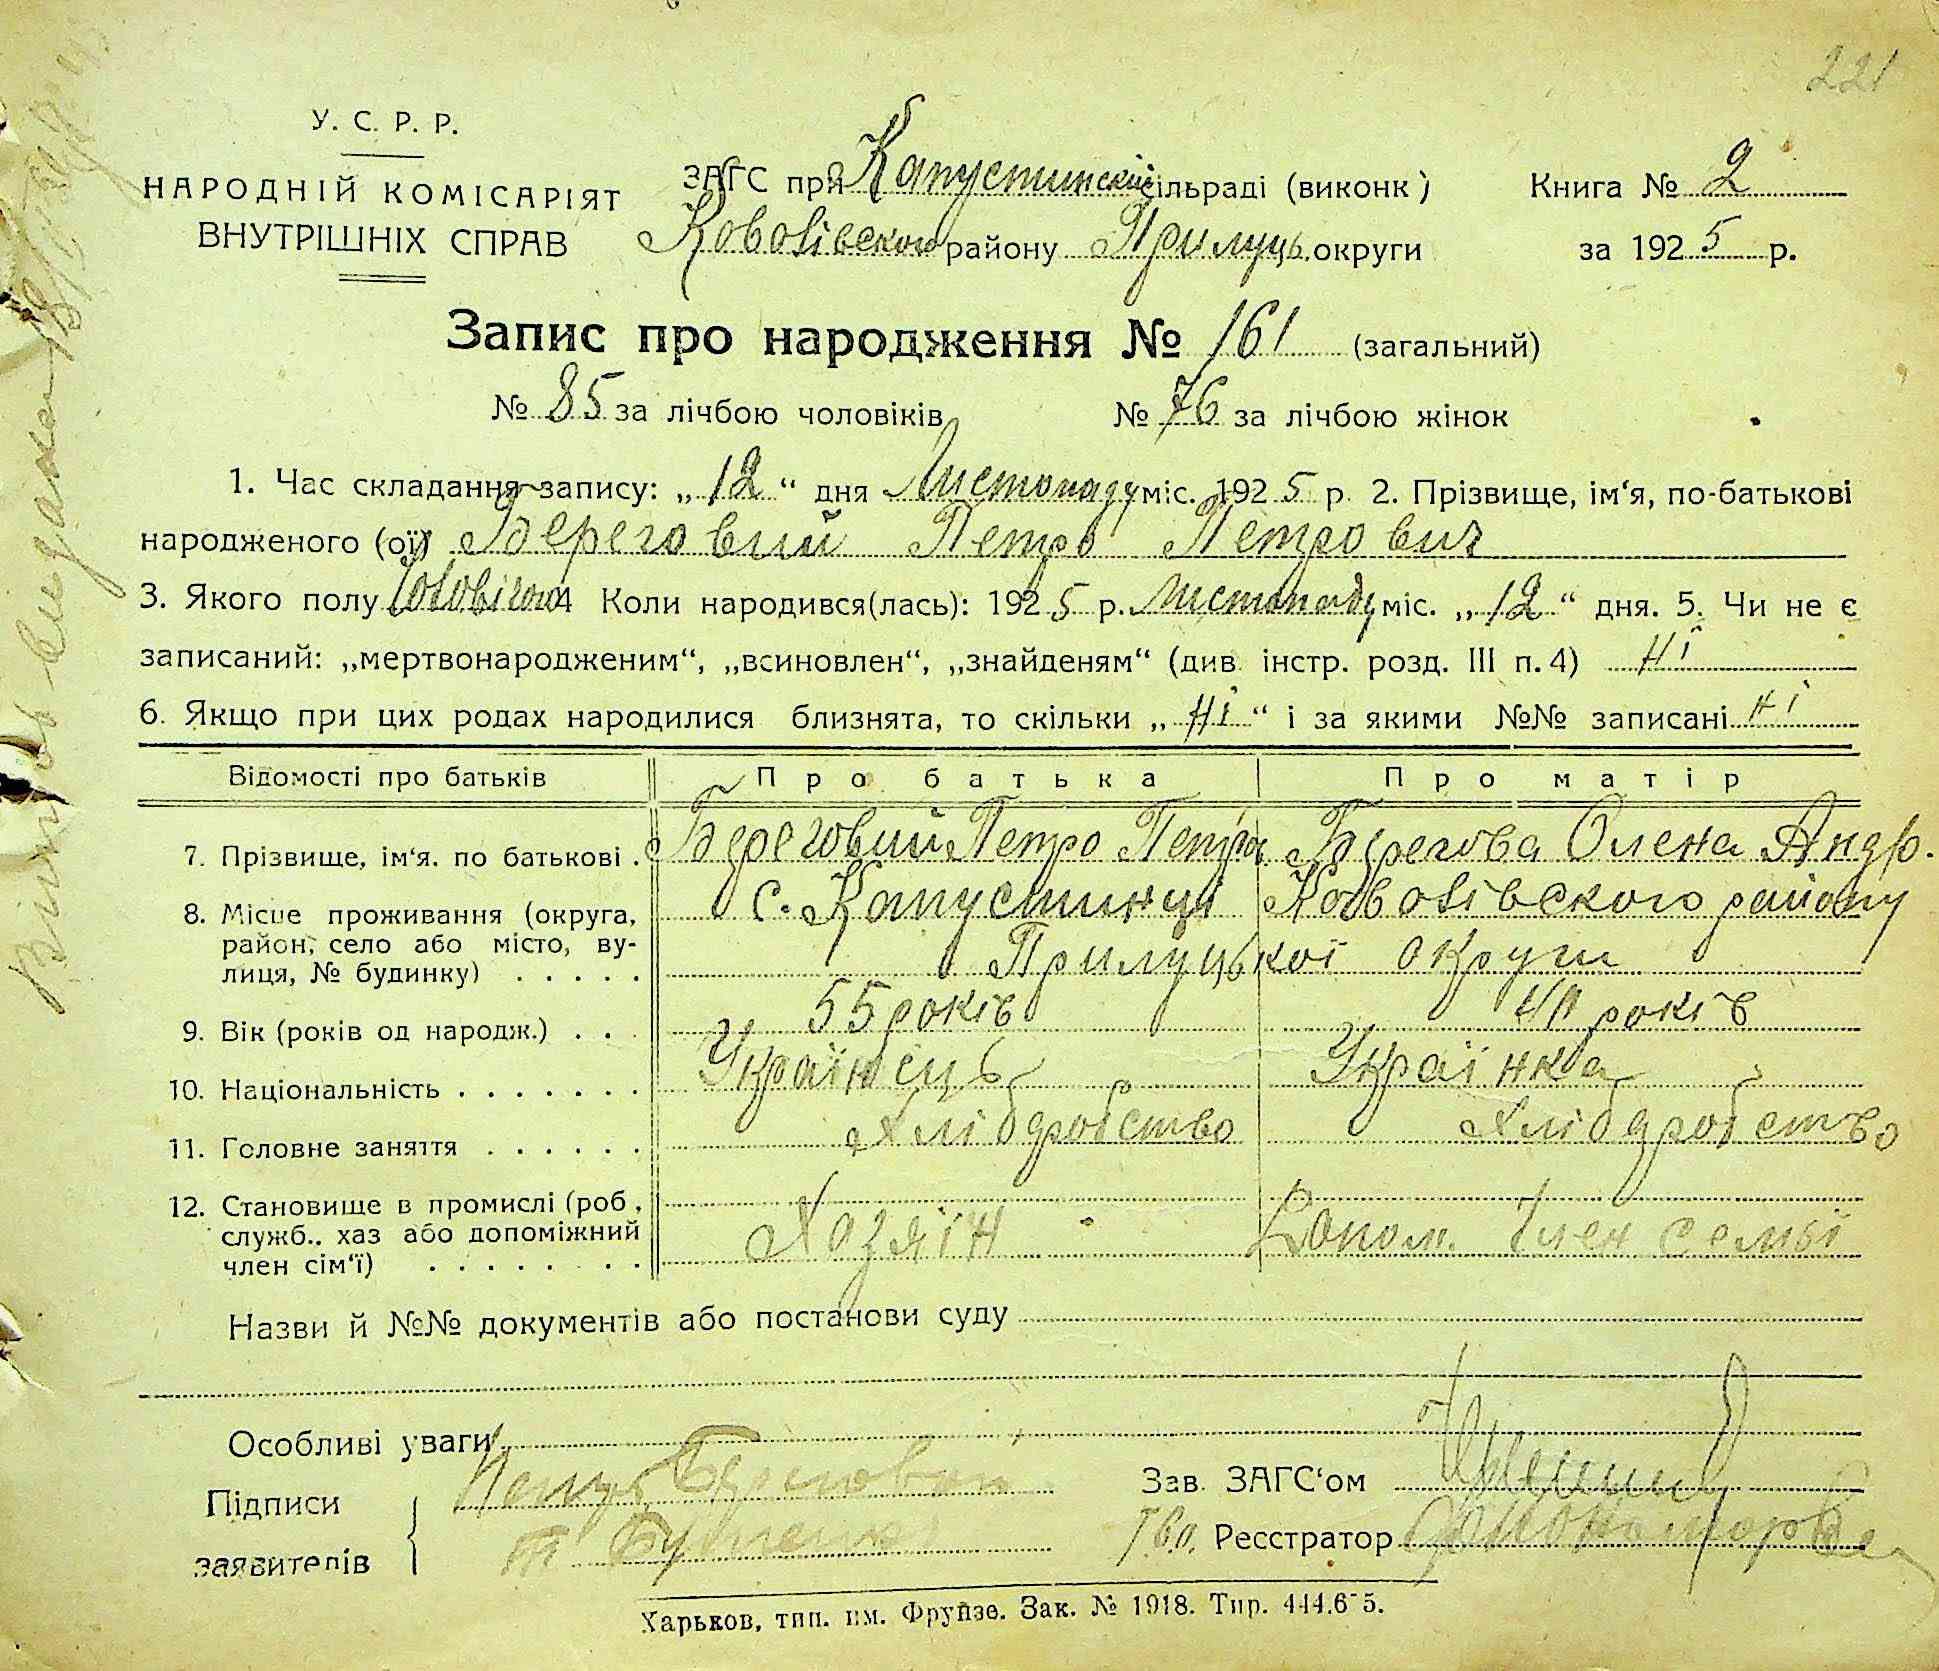 221
У. С. Р. Р.
НАРОДНІЙ КОМІСАРІЯТ
ВНУТРІШНІХ СПРАВ
ЗАГС при Капустинській сільраді (виконк)
Яровівского району Прилуць. округи
Книга № 2
за 1925 р.
Запис про народження № 161 (загальний)
№ 85 за лічбою чоловіків № 76 за лічбою жінок
1. Час складання запису: „12“ дня Листопаду міс. 1925 р. 2. Прізвище, ім‘я, по-батькові
народженого (ої) Береговий Петро Петрович
3. Якого полу чоловічого 4 Коли народився(лась): 1925 р. Листопаду міс. „12“ дня. 5. Чи не є
записаний: „мертвонародженим“, „всиновлен“, „знайденям“ (див. інстр. розд. III п. 4) Ні
6. Якщо при цих родах народилися близнята, то скільки „Ні“ і за якими №№ записані Ні
Відомості про батьків Про батька Про матір
7. Прізвище, ім‘я. по батькові . Береговий Петро Петров. Берегова Олена Андр.
8. Місце проживання (округа, район, село або місто, вулиця, № будинку) . . . . . с. Капустинці
району
Прилуцької округи
9. Вік (років од народж.) . . . 55 років 40 років
10. Національність . . . . . . . Українець Українка
11. Головне заняття . . . . . . Хліборобство Хліборобство
12. Становище в промислі (роб.,
служб., хаз або допоміжний Хазяїн Допом. член семьї
член сім‘ї) . . . . . . . .
Назви й №№ документів або постанови суду
Особливі уваги
Підписи
заявителів
Петр Береговой
Зав. ЗАГС‘ом
Тво. Реєстратор
Харьков, тип. им. Фрунзе. Зак. № 1918. Тир. 444.6-5.